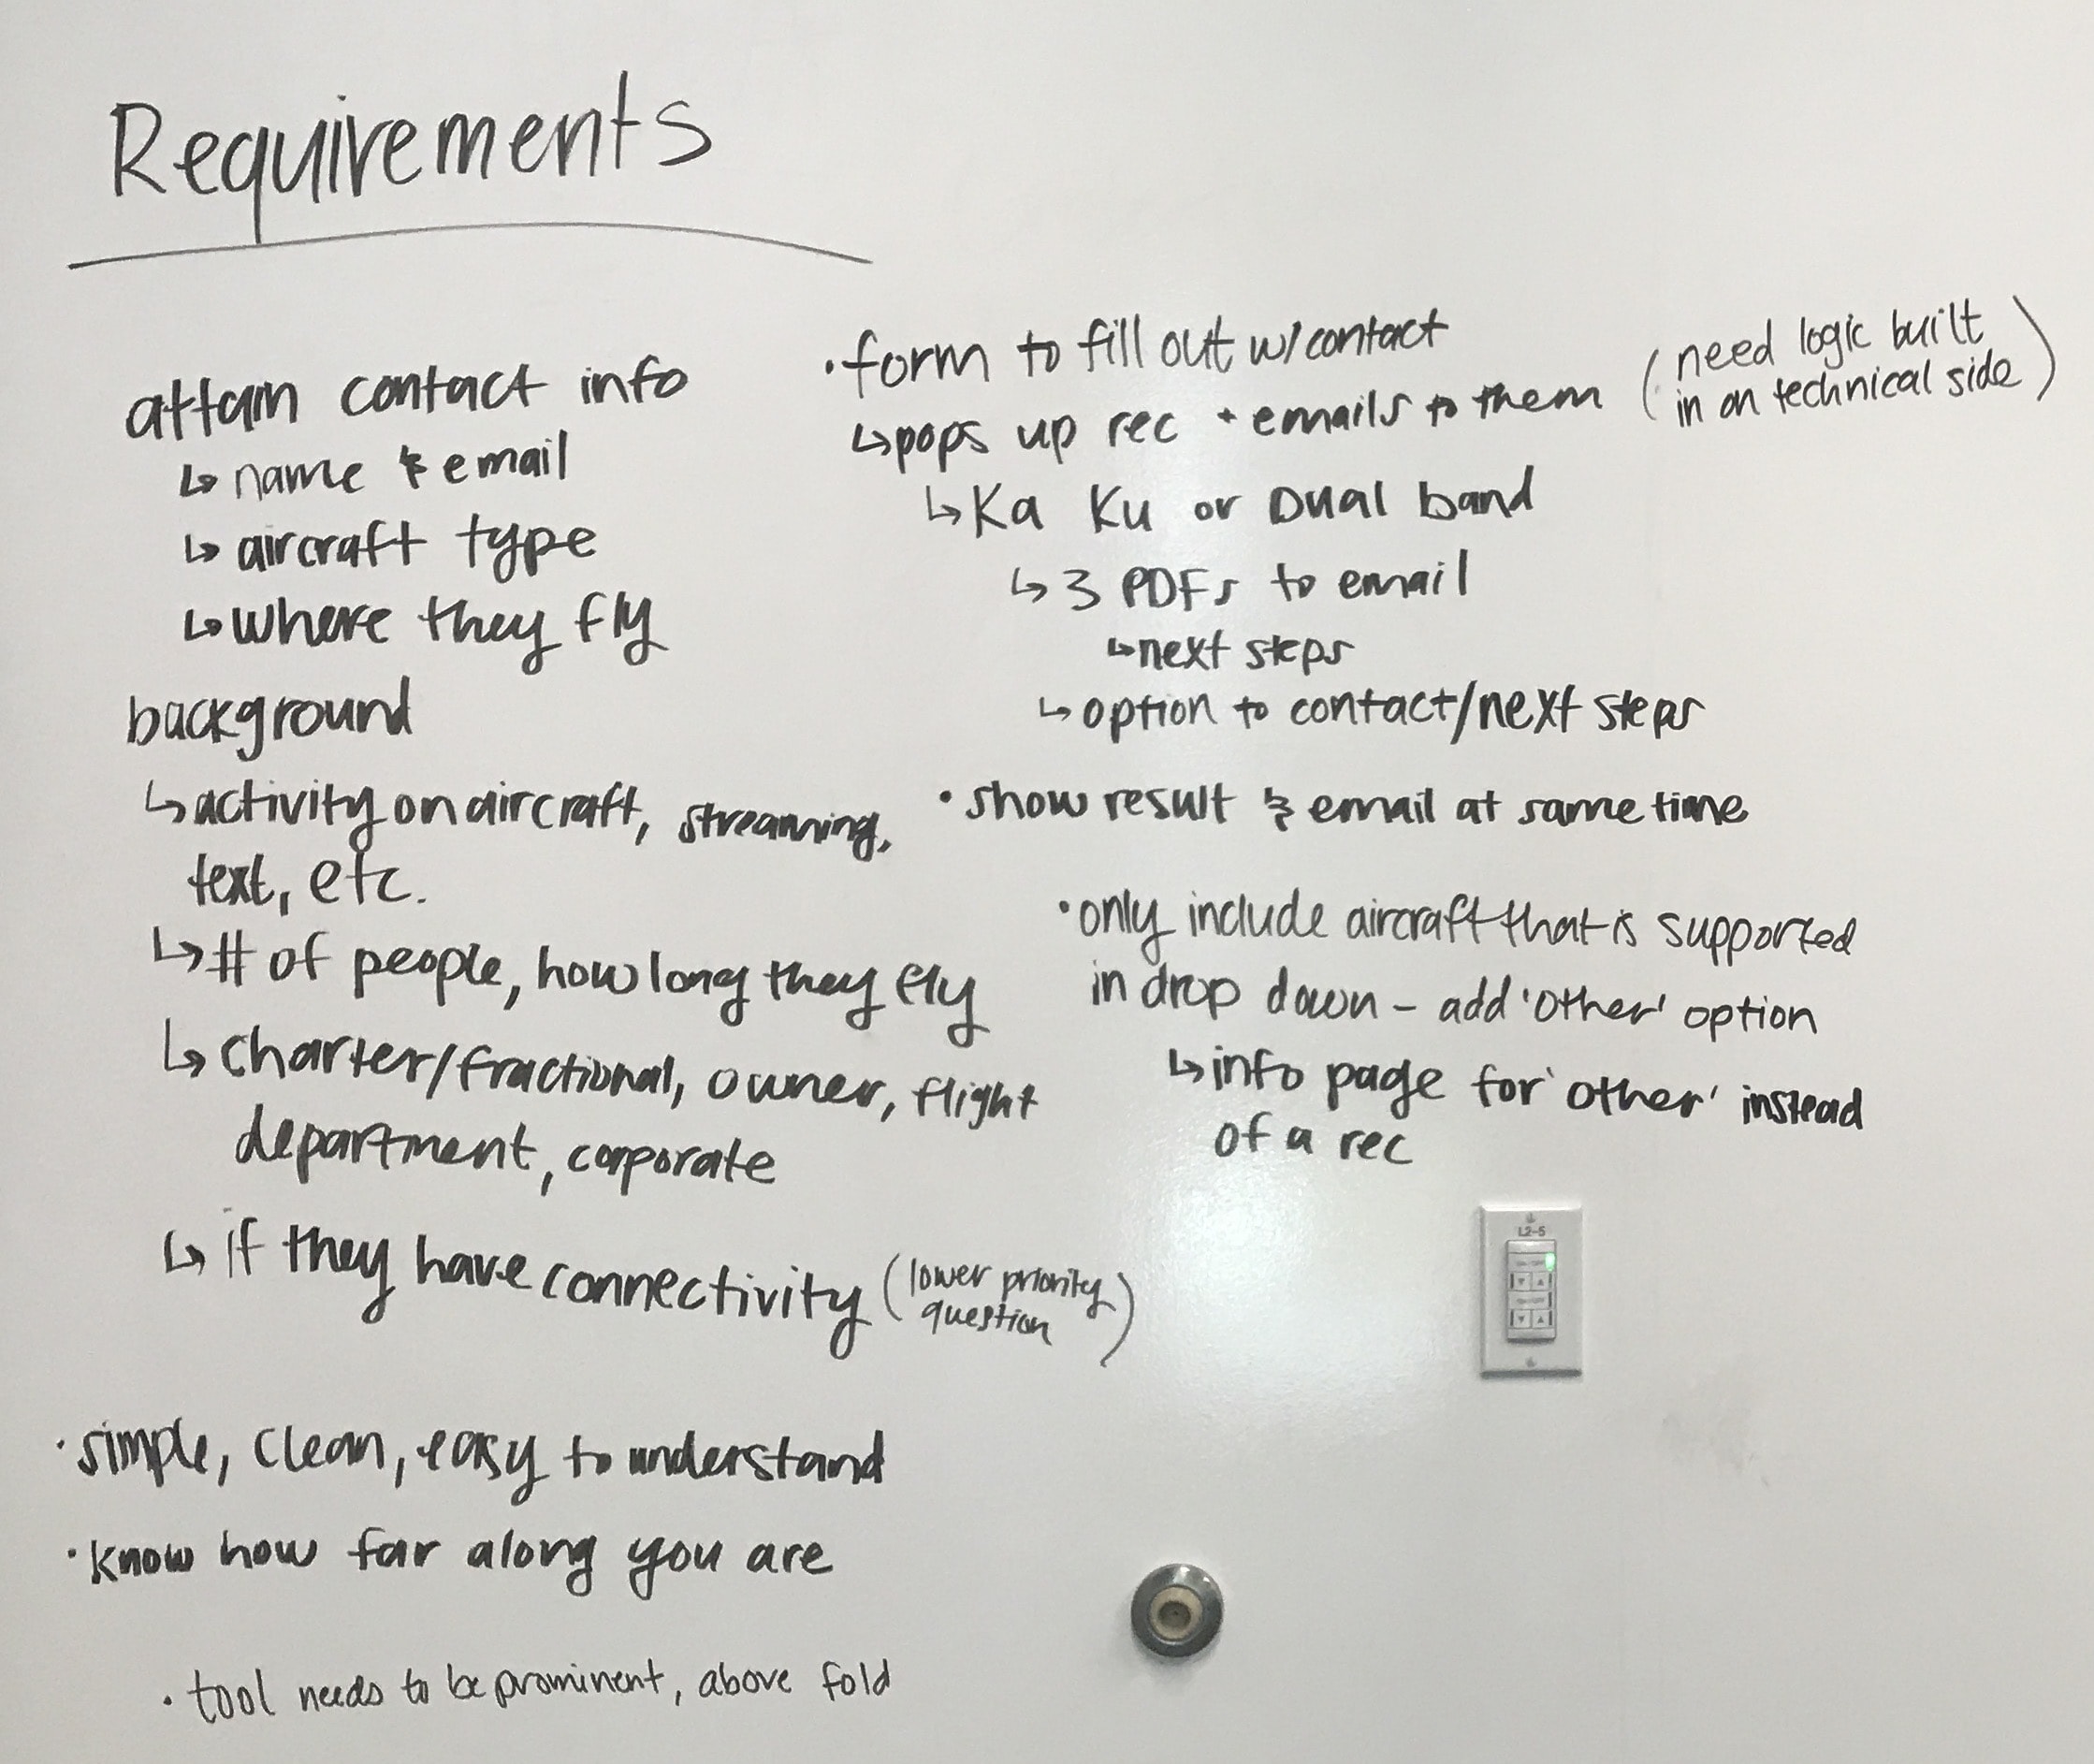 Requirements
attain contact info
↳ name & email
↳ aircraft type
↳ where they fly
background
↳ activity on aircraft, streaming,
text, etc.
↳ # of people, how long they fly
↳ charter/fractional, owner, flight
department, corporate
↳ if they have connectivity (lower priority
question)
• simple, clean, easy to understand
• know how far along you are
• tool needs to be prominent, above fold
• form to fill out w/ contact
↳ pops up rec + emails to them (need logic built
in on technical side)
↳ Ka Ku or Dual band
↳ 3 PDFs to email
↳ next steps
↳ option to contact/next steps
• show result & email at same time
• only include aircraft that is supported
in drop down – add 'other' option
↳ info page for 'other' instead
of a rec
L2-5